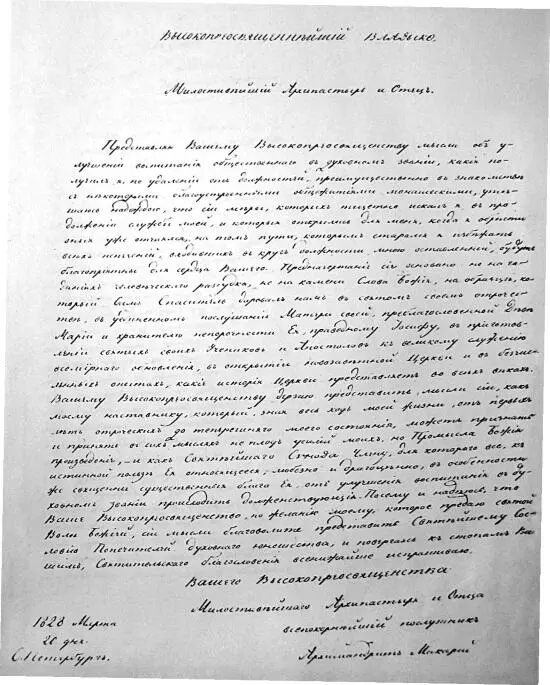 Высокопреосвященнѣйшій Владыко.
Милостивѣйшій Архипастырь и Отецъ.
Представляя Вашему Высокопреосвященству мысли объ у-
лучшеніи воспитанія общественнаго въ духовномъ званіи, какія по-
лучилъ я по удаленіи отъ должностей, преимущественно въ знакомствѣ
съ нѣкоторыми благоустроенными общежитіями монашескими, утѣ-
шаюсь надеждою, что сіи мѣры, которыхъ тщетно искалъ я въ про-
долженіи службы моей, и которыя открылись для меня, когда я обрѣсти
оныя уже отчаялся, на томъ пути, которымъ старался я избѣжать
всѣхъ попеченій, въ кругѣ должности мною оставленной, будутъ
благопріятны для сердца Вашего. Предначертаніе сіе основано не на га-
даніяхъ человѣческаго разсудка, но на камени Слова Божія, на образцѣ, ко-
торый Самъ Спаситель даровалъ намъ въ святомъ своемъ отроче-
ствѣ, въ уединенномъ послушаніи Матери своей, преблагословенной Дѣвѣ
Маріи и хранителю непорочности Ея, праведному Іосифу, въ приготов-
леніи святыхъ своихъ Учениковъ и Апостоловъ къ великому служенію
всемірнаго обновленія, въ открытіи новозавѣтной Церкви и въ безчис-
ленныхъ опытахъ, какіе исторія Церкви представляетъ во всѣхъ вѣкахъ.
Вашему Высокопреосвященству дерзаю представить мысли сіи, какъ
моему наставнику, который, зная весь ходъ моей жизни, отъ первыхъ
лѣтъ отроческихъ до теперешняго моего состоянія, можетъ признать
и принять въ сихъ мысляхъ не плодъ усилій моихъ, но Промысла Божія
произведеніе, и какъ Святѣйшаго Сѵнода Члену, для котораго все, къ
истинной пользѣ Ея относящееся, любезно и драгоцѣнно, въ особенности
же священны существенныя блага Ея, отъ улучшенія воспитанія въ ду-
ховномъ званіи произходить долженствующія. Посему и надѣюсь, что
Ваше Высокопреосвященство, по желанію моему, которое предаю святой
Волѣ Божіей, сіи мысли благоволите представить Святѣйшему Сос-
ловію Попечителей духовнаго юношества, и повергаясь къ стопамъ Ва-
шимъ, Святительскаго благословенія всенижайше испрашиваю.
Вашего Высокопреосвященства
Милостивѣйшаго Архипастыря и Отца
всепокорнѣйшій послушникъ
Архимандритъ Макарій
1828 Марта
20 дня.
С. Петербургъ.